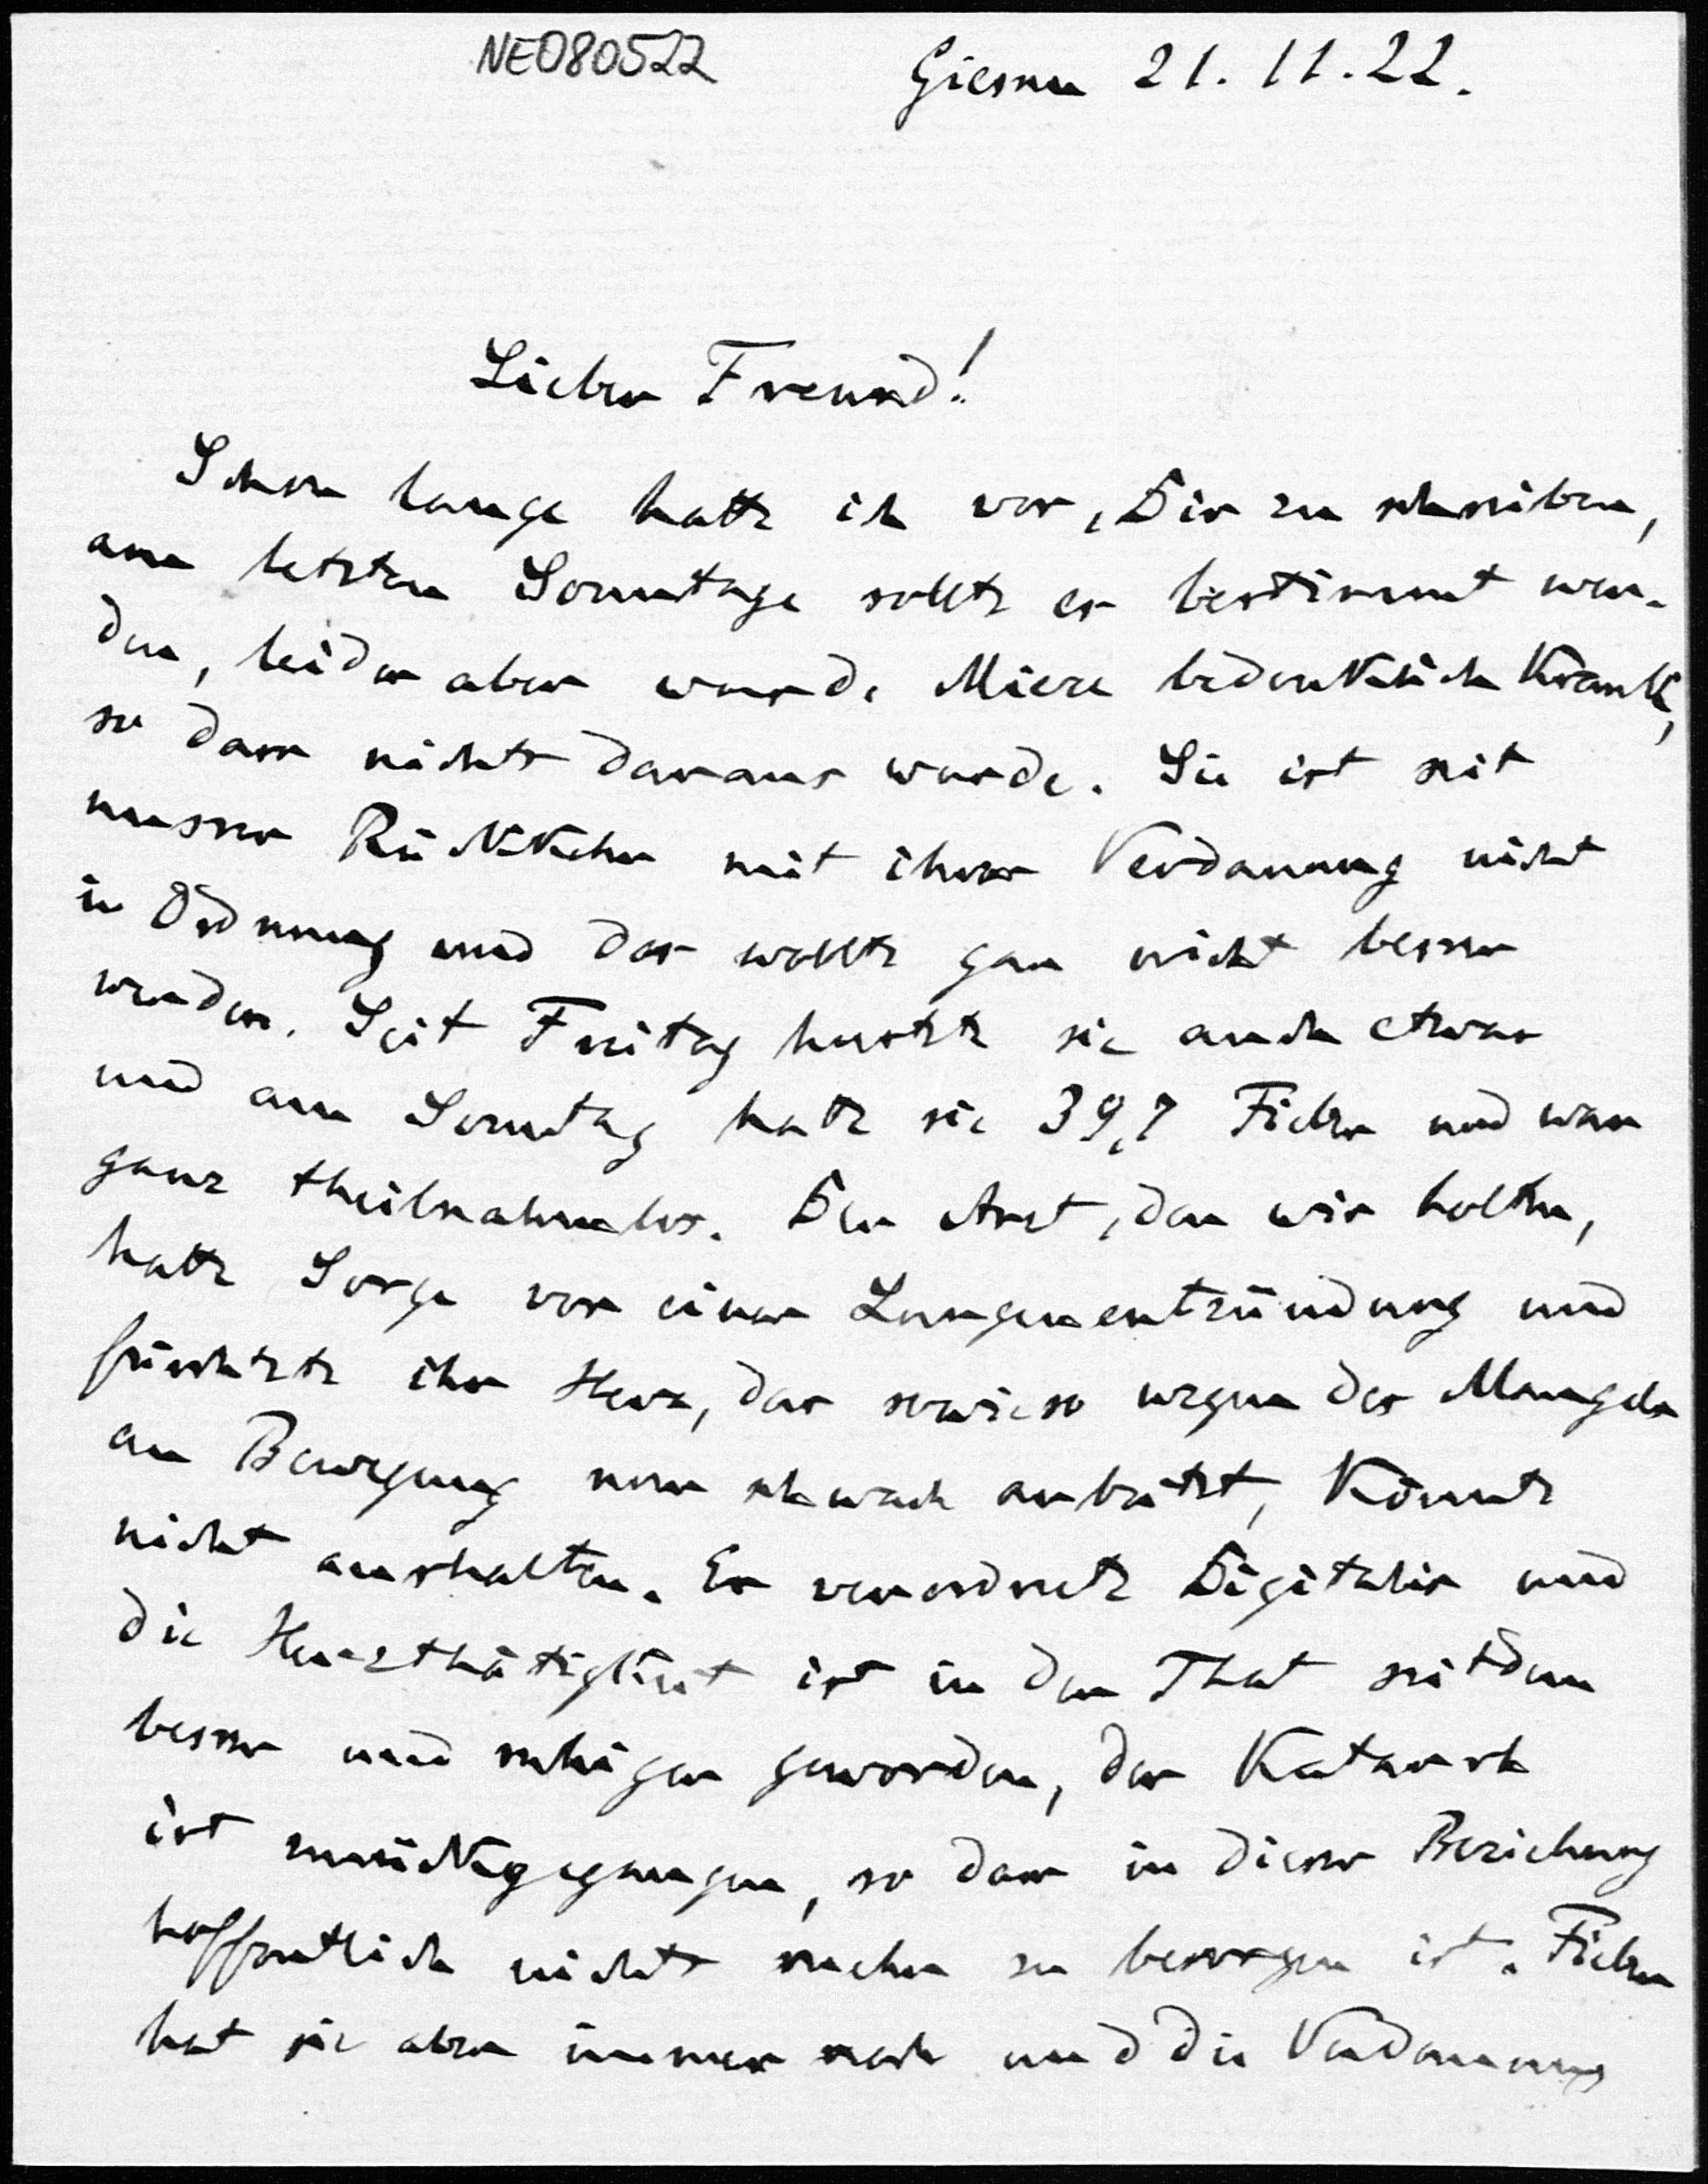 NE080522
Giessen 21.11.22.
Lieber Freund!
Schon lange hatte ich vor, Dir zu schreiben,
am letzten Sonntage sollte es bestimmt wer-
den, leider aber wurde Mieze bedenklich krank,
so dass nichts daraus wurde. Sie ist seit
unserer Rückkehr mit ihrer Verdauung nicht
in Ordnung und das wollte gar nicht besser
werden. Seit Freitag hustete sie auch etwas
und am Sonntag hatte sie 39,7 Fieber und war
ganz theilnahmlos. Der Arzt, den wir holten,
hatte Sorge vor einer Lungenentzündung und
fürchtete ihr Herz, das sowieso wegen des Mangels
an Bewegung nur schwach arbeitet, könnte
nicht aushalten. Er verordnete Digitalis und
die Herzthätigkeit ist in der That seitdem
besser und ruhiger geworden, der Katarrh
ist zurückgegangen, so dass in dieser Beziehung
hoffentlich nichts mehr zu besorgen ist. Fieber
hat sie aber immer noch und die Verdauung